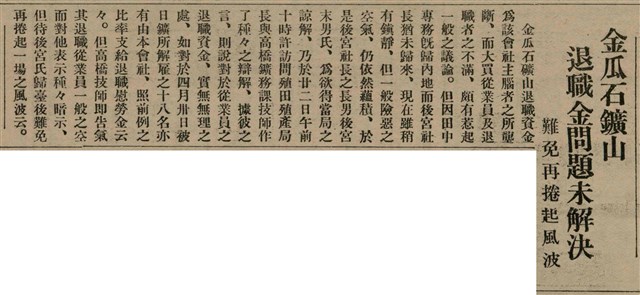 金瓜石鑛山
退職金問題未解決
難免再捲起風波
金瓜石礦山退職資金
為該會社主腦者之所壟
斷、而大買從業員及退
職者之不滿、頗有惹起
一般之議論。但因田中
專務旣歸內地而後宮社
長猶未歸來、現在雖稍
有鎮靜、但一般險惡之
空氣、仍依然蘊積、於
是後宮社長之長男後宮
末男氏、為欲得當局之
諒解、乃於廿二日午前
十時許訪問殖田殖產局
長與高橋鑛務課技師作
了種々之辯解、據彼之
言、則說對於從業員之
退職資金、實無無理之
處、如對於四月卅日被
日鑛所解雇之十八名亦
有由本會社、照前例之
比率支給退職慰勞金云
々。但高橋技師即告氣
其退職從業員一般之空
而對他表示種々暗示、
但待後宮氏歸臺後難免
再捲起一場之風波云。